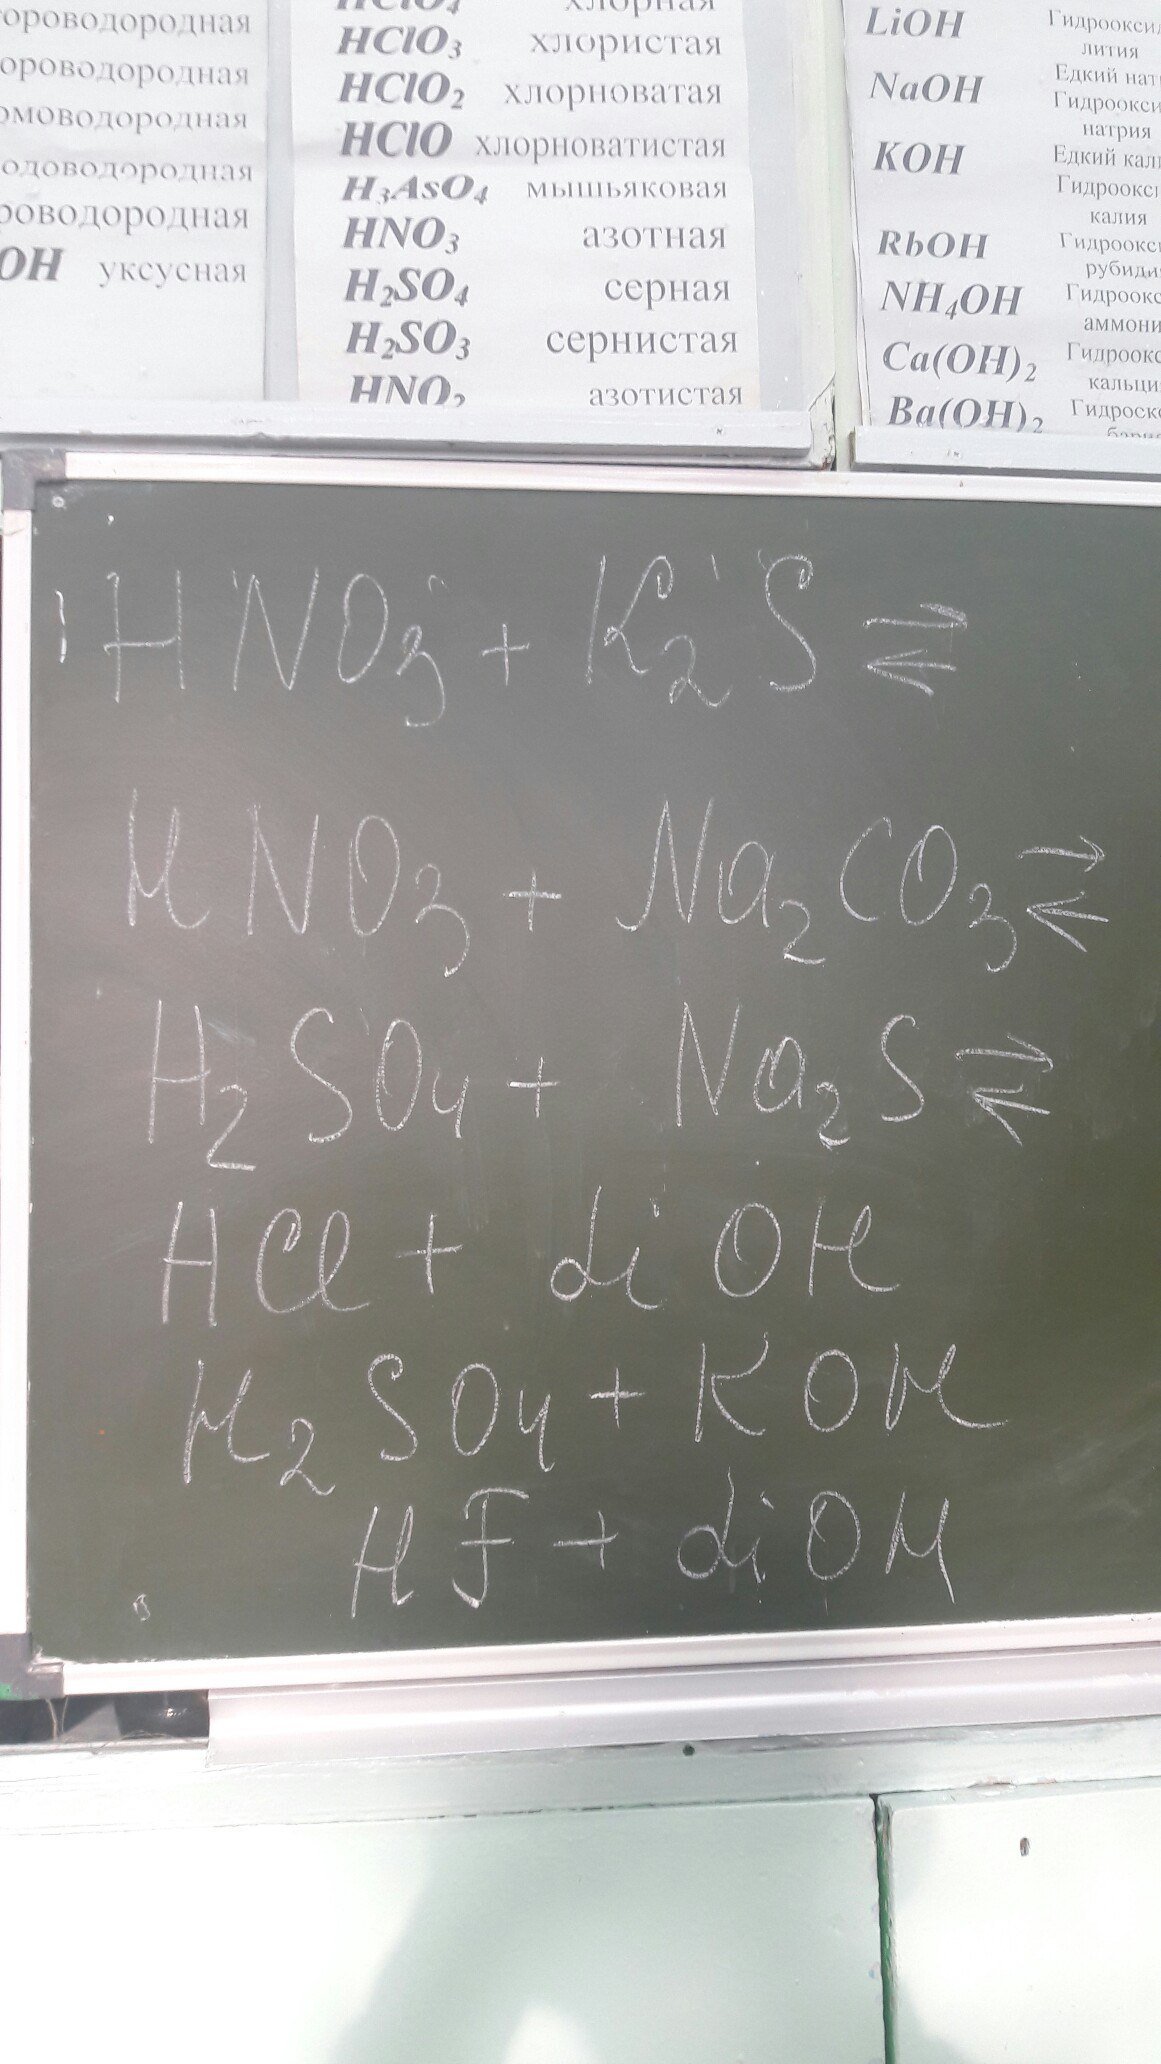 ороводородная
ороводородная
омоводородная
одоводородная
роводородная
OH уксусная
HClO₄ хлорная
HClO₃ хлористая
HClO₂ хлорноватая
HClO хлорноватистая
H₃AsO₄ мышьяковая
HNO₃ азотная
H₂SO₄ серная
H₂SO₃ сернистая
HNO₂ азотистая
LiOH Гидроокси
лития
Едкий нат
NaOH Гидроокси
натрия
KOH Едкий кал
Гидроокс
калия
RbOH Гидроокс
рубиди
NH₄OH Гидроокс
аммони
Ca(OH)₂ Гидроокс
кальци
Ba(OH)₂ Гидроск
бари
HNO₃ + K₂S ⇄
HNO₃ + Na₂CO₃ ⇄
H₂SO₄ + Na₂S ⇄
HCl + LiOH
H₂SO₄ + KOH
HF + LiOH